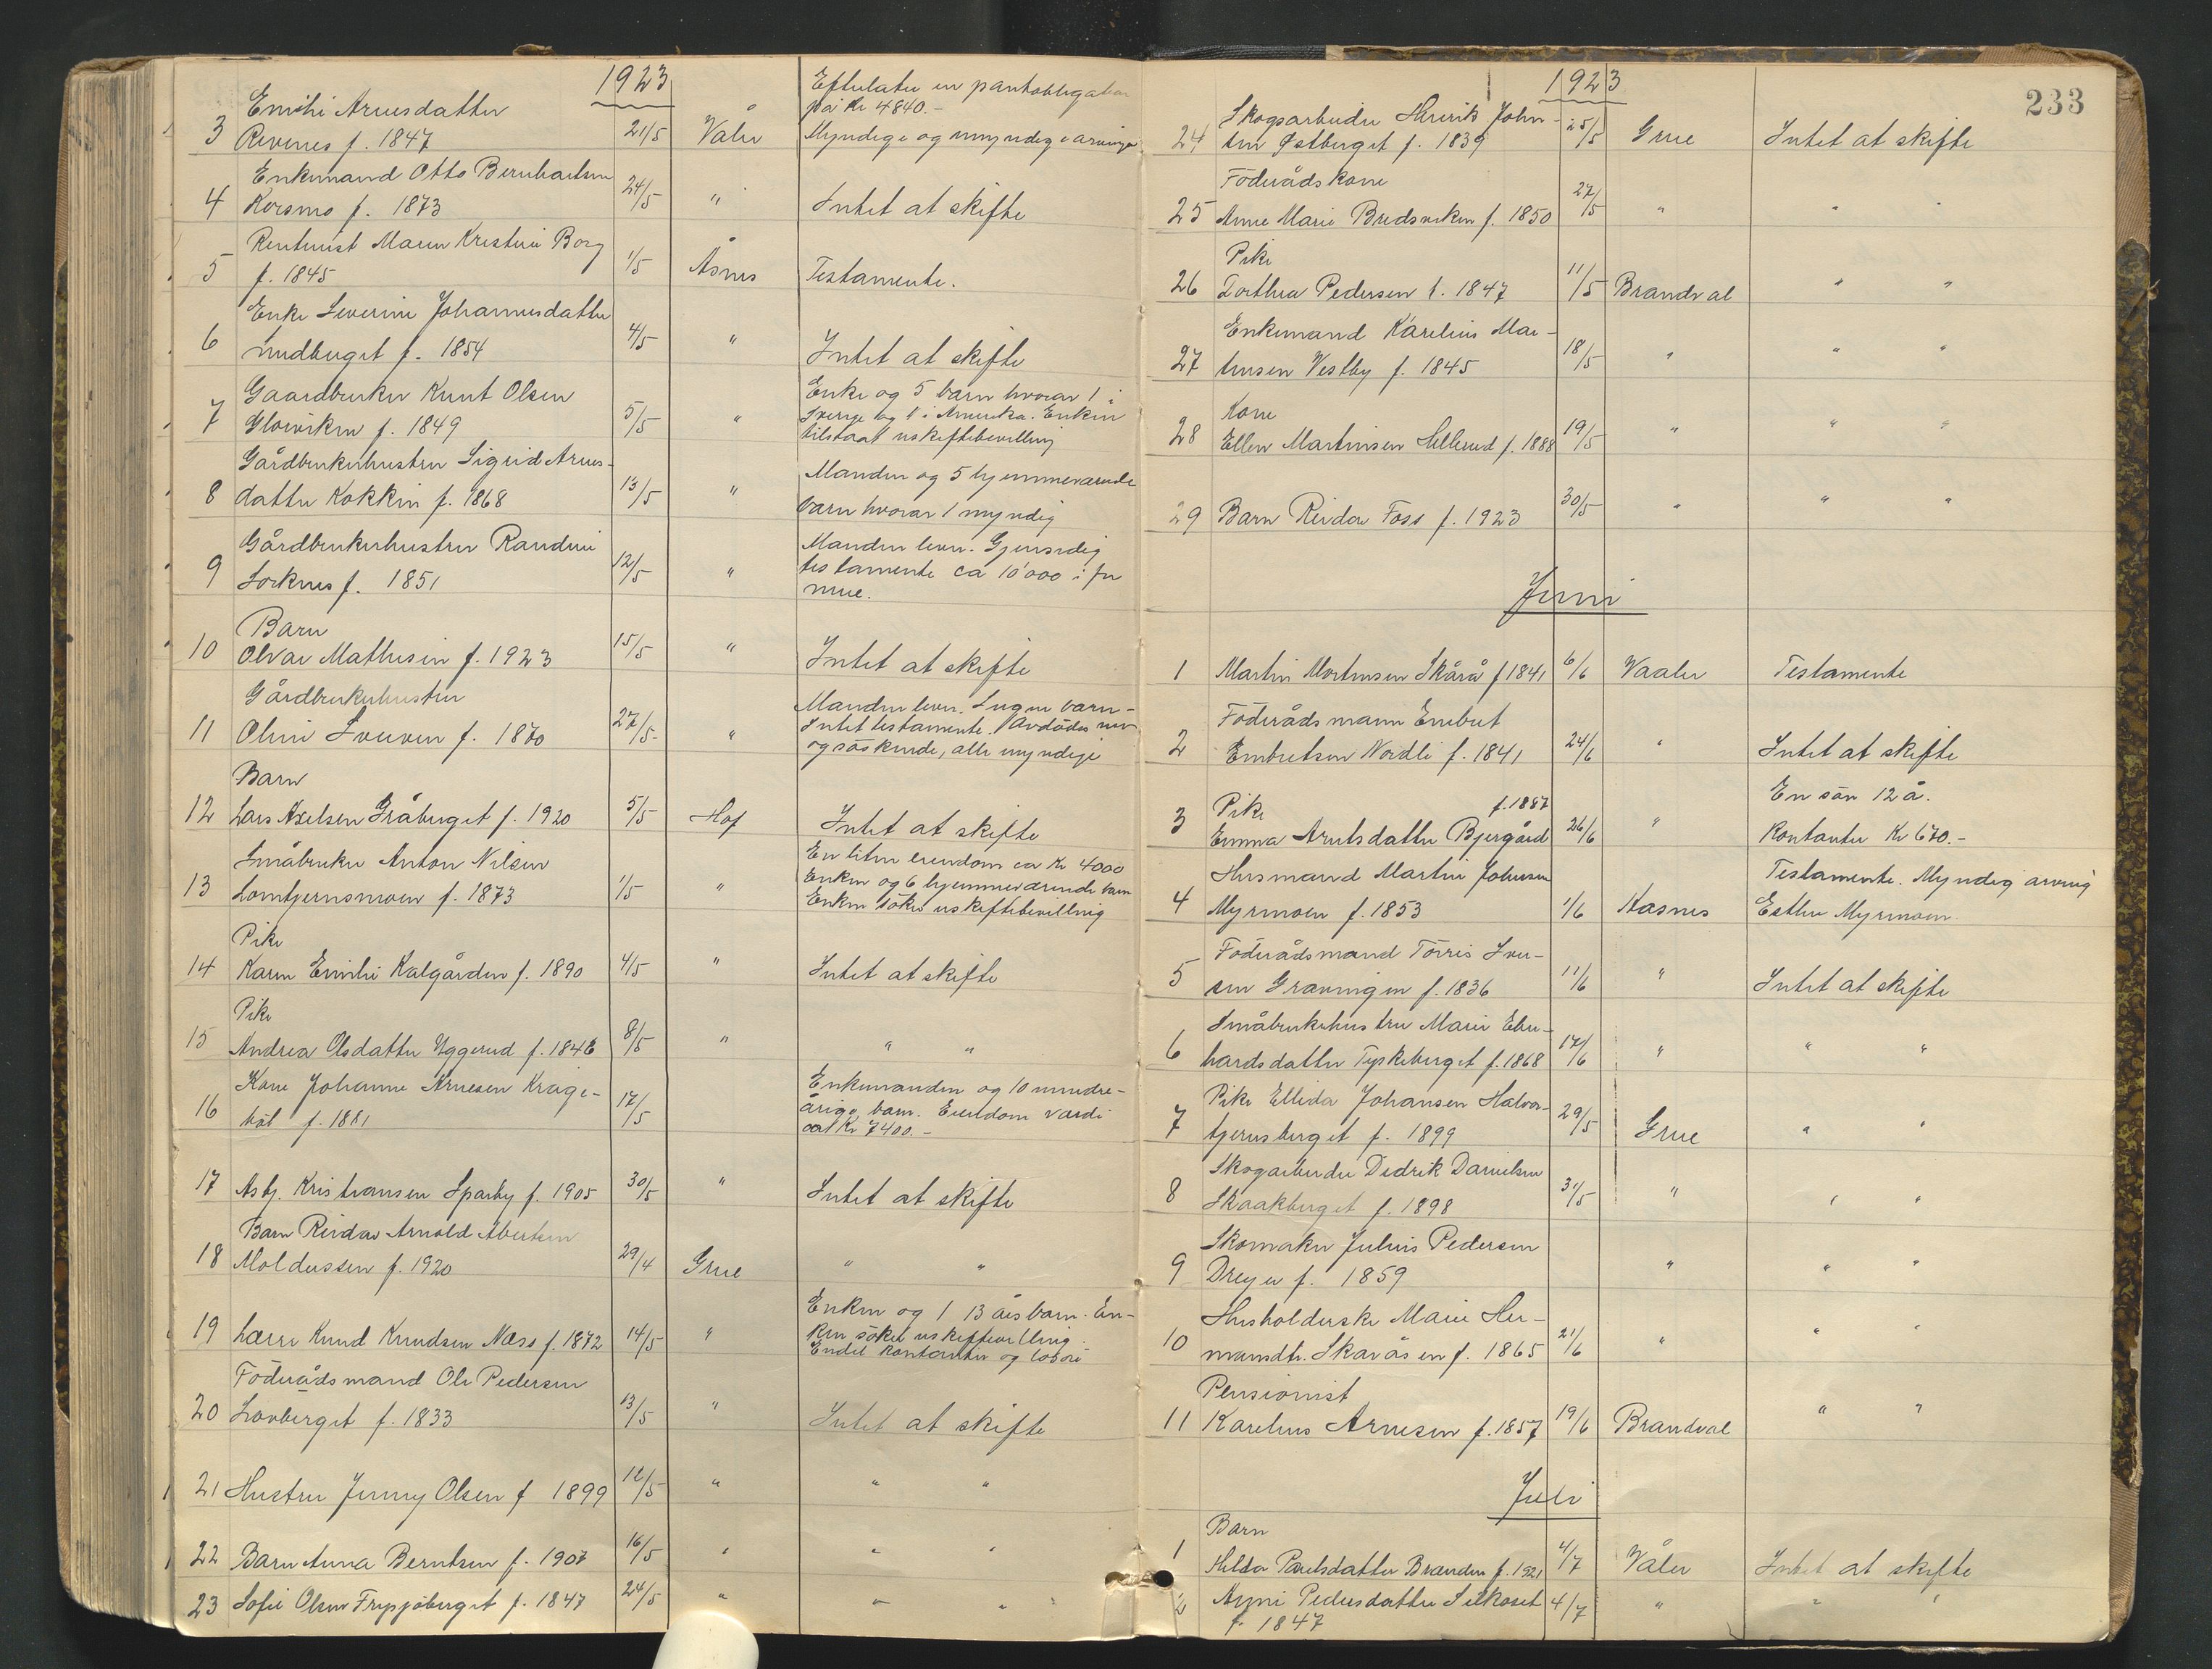 1923
Emilie Arnesdatter
3 Revenes f. 1847 21/5 Våler
Efterlater en pantobligation
på kr 4840.-
Myndige og umyndige arvinger
Enkemand Otto Bernhartsen
4 Korsmo f. 1873 24/5 " Intet at skifte
Rentenist Maren Kristine Borg
5 f. 1845 1/5 Åsnes Testamente.
Enke Severine Johannesdatter
6 f. 1854 4/5 " Intet at skifte
Gaardbruker Knut Olsen
7 f. 1849 5/5 "
Enke og 5 barn hvorav 1 i
Sverige og 1 i Amerika. Enken
tilstaat uskiftebevilling
Gårdbrukerhustru Sigrid Arnes-
8 datter Kokkin f. 1868 13/5 "
Manden og 5 hjemmeværende
barn hvorav 1 myndig
Gårdbrukerhustru Randine
9 Sorknes f. 1851 12/5 "
Manden lever. Gjensidig
testamente ca 10'000 i for
mue.
Barn
10 Olvar Mathisen f. 1923 15/5 " Intet at skifte
Gårdbrukerhustru
11 Oline f. 1870 27/5 "
Manden lever. Ingen barn-
Intet testamente. Avdødes mor
og søskende, alle myndige
Barn
12 Lars Axelsen Gråberget f. 1920 5/5 Hof Intet at skifte
Småbruker Anton Nilsen
13 Lomtjernsmoen f. 1873 1/5 "
En liten eiendom ca kr 4000
Enken og 6 hjemmeværende barn
Enken søker uskiftebevilling
Pike
14 Karen Emilie Kalgården f. 1890 4/5 " Intet at skifte
Pike
15 Andrea Olsdatter Uggerud f. 1846 8/5 " " "
Kone Johanne Arnesen Krage-
16 f. 1881 17/5
Enkemanden og 10 mindre-
årige barn. Eiendom værdi
kr 7400.-
17 Asbj. Kristiansen Sparby f. 1905 30/5 " Intet at skifte
Barn Reidar Arnold
18 Moldussen f. 1920 29/4 Grue " "
19 Lærer Knud Knudsen Næss f. 1872 14/5 "
Enken og 1 13 års barn. En-
ken søker
Endel kontanter og løsøre
Föderådsmand Ole Pedersen
20 Lovberget f. 1833 13/5 " Intet at skifte
21 Hustru Jenny Olsen f 1899 12/5 " " "
22 Barn Anna Berntsen f. 1907 16/5 " " "
23 Sofie Olsen f. 1847 24/5 " " "
1923
233
Skogsarbeider Henrik Johan-
24 sen Östberget f. 1839 25/5 Grue Intet at skifte
Föderådskone
25 Anne Marie Bredsviken f. 1850 27/5 " " "
Pike
26 Dorthea Pedersen f. 1847 11/5 Brandval " "
Enkemand Karelius Mar-
27 tinsen Vestby f. 1845 18/5 " " "
Kone
28 Ellen Martinsen f. 1888 19/5 " " "
29 Barn Reidar Foss f. 1923 30/5 " " "
Juni
1 Martin Mortensen Skårå f 1841 6/6 Vaaler Testamente
Föderådsmann Embret
2 Embretsen Nordli f. 1841 24/6 " Intet at skifte
Pike f. 1887
3 Emma Arntsdatter Bjergård 26/6 "
En sön 12 å.
Kontanter kr 670.-
Husmand Martin Johnsen
4 Myrmoen f. 1853 1/6 Aasnes
Testamente. Myndig arving
Esther Myrmoen
Föderådsmand Törris Iver-
5 sen Gravingen f. 1836 11/6 " Intet at skifte
Småbrukerhustru Marie Eber-
6 hardsdatter Tyskeberget f. 1868 17/6 " " "
Pike Ellida Johansen Halvor-
7 tjernsberget f. 1899 29/5 Grue " "
Skogarbeider Didrik Danielsen
8 Skaakberget f. 1898 31/5 " " "
Skomaker Julius Pedersen
9 Dreyer f. 1859 " " "
Husholderske Marie Her-
10 mansdtr. Skaråsen f. 1865 21/6 " " "
Pensionist
11 Karelius Arnesen f. 1857 19/6 Brandval " "
Juli
Barn
1 Hilda Paulsdatter Branden f. 1921 4/7 Våler Intet at skifte
2 Agni Pedersdatter Silkoset 4/7 " " "
f. 1847